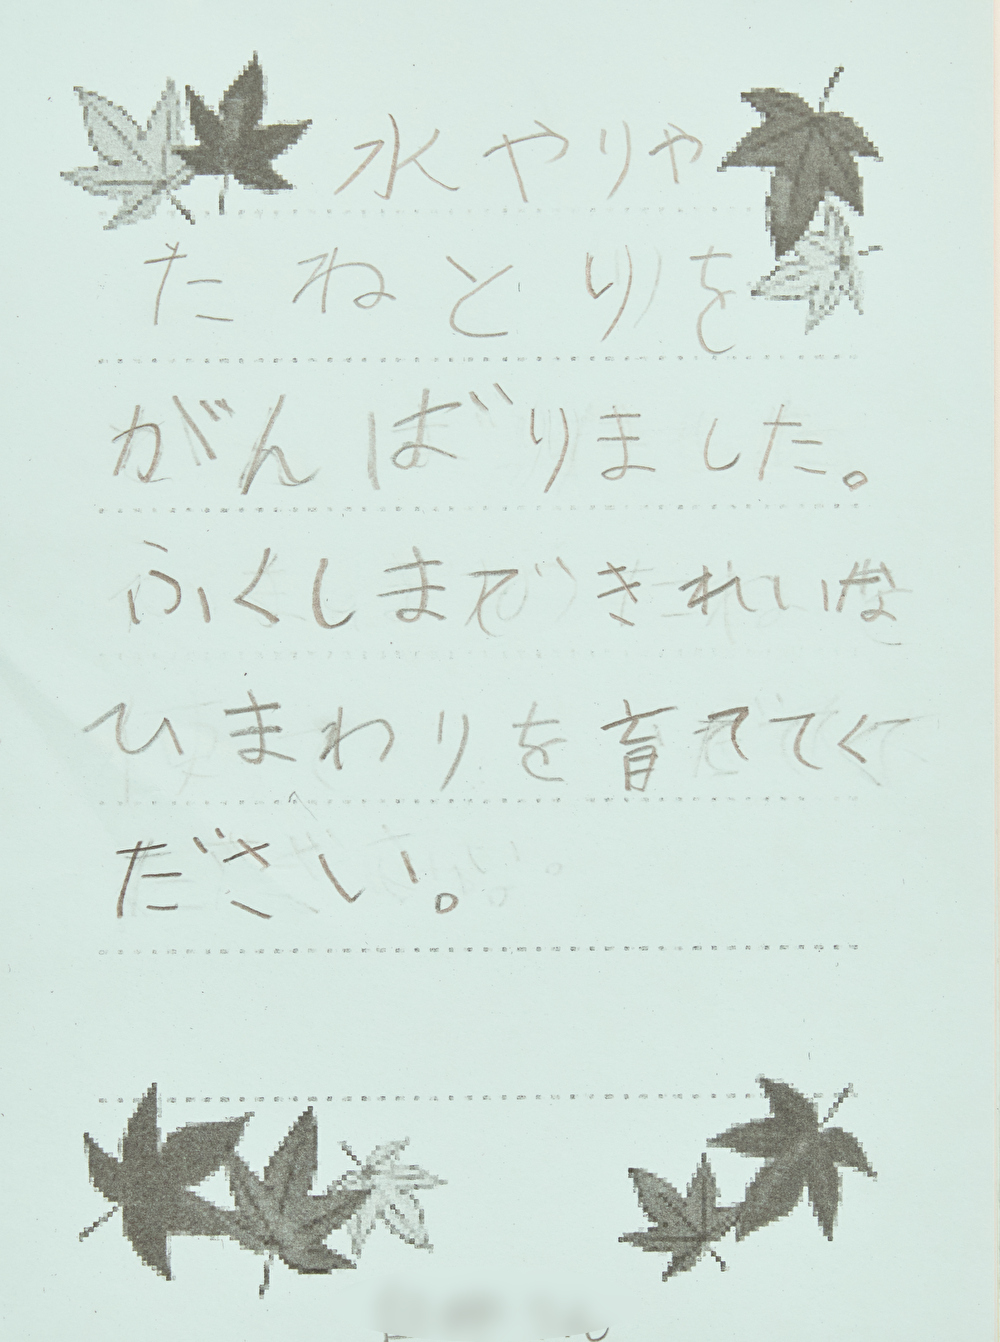 水やりや
たねとりを
がんばりました。
ふくしまできれいな
ひまわりを育ててく
ださい。